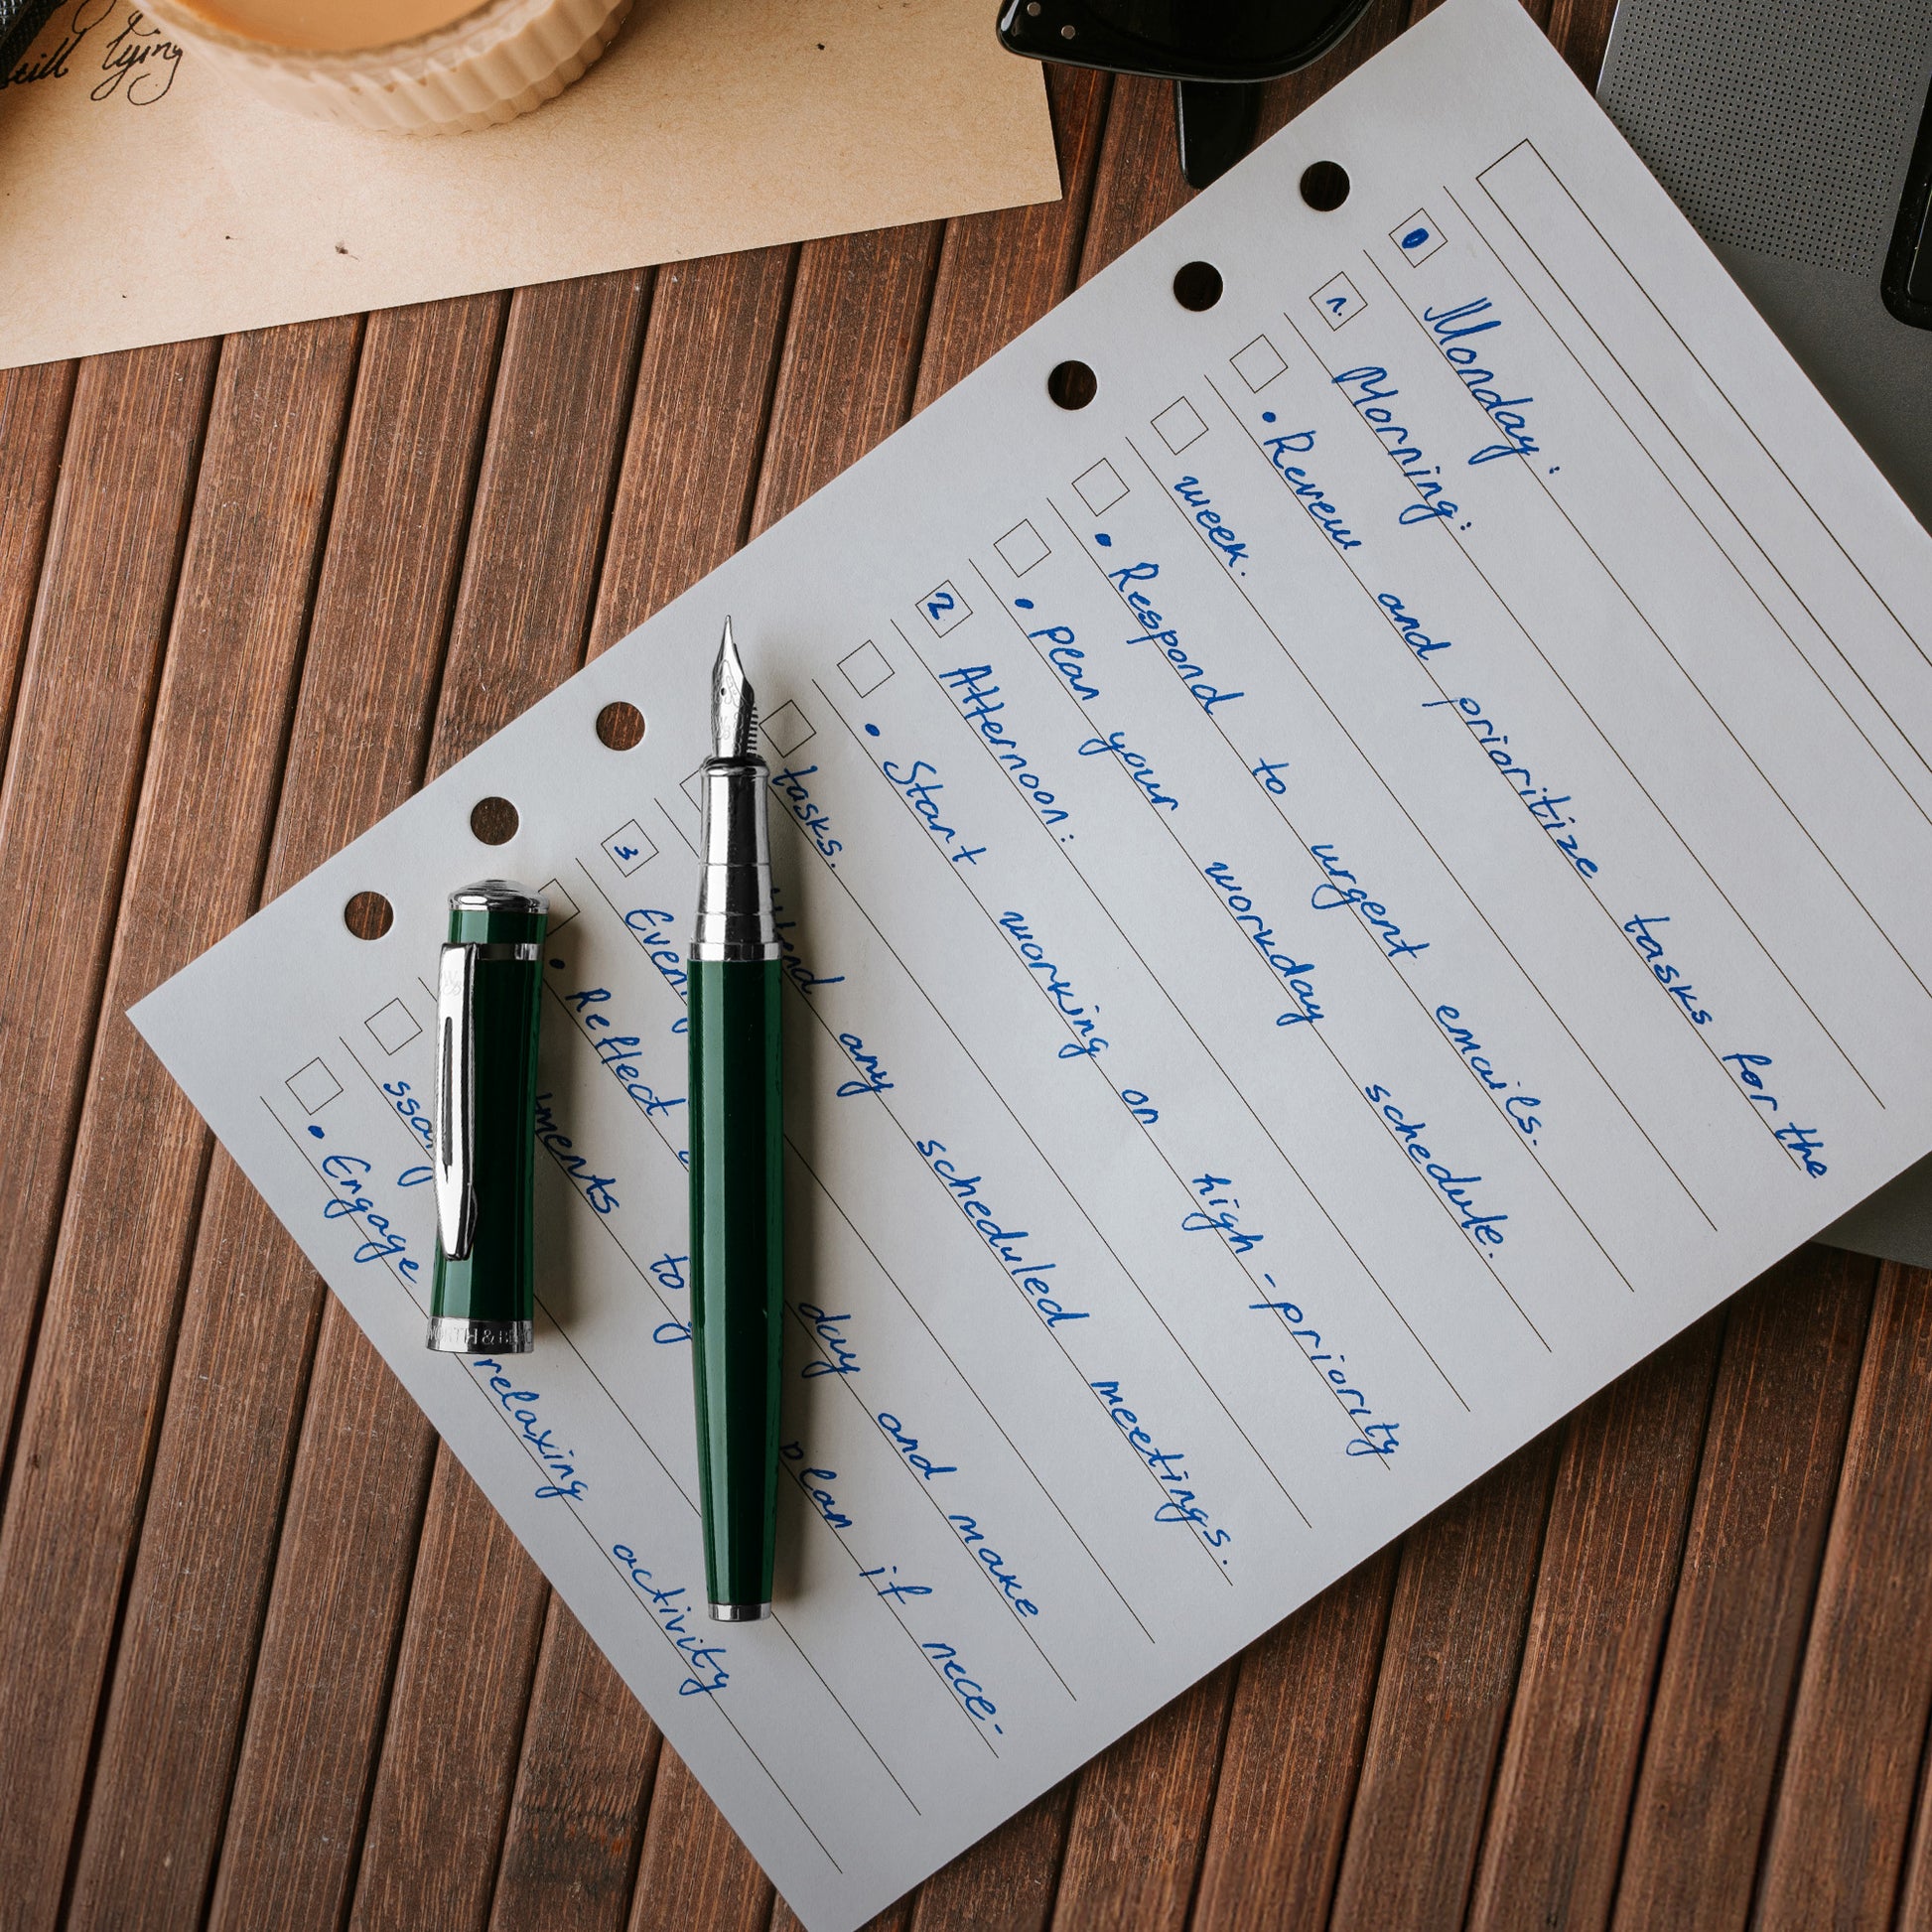 still lying
Monday:
1. Morning:
• Review and prioritize tasks for the
week.
• Respond to urgent emails.
• Plan your workday schedule.
2 Afternoon:
• Start working on high-priority
tasks.
any scheduled meetings.
3
• Reflect day and make
to plan if nece-
• Engage relaxing activity